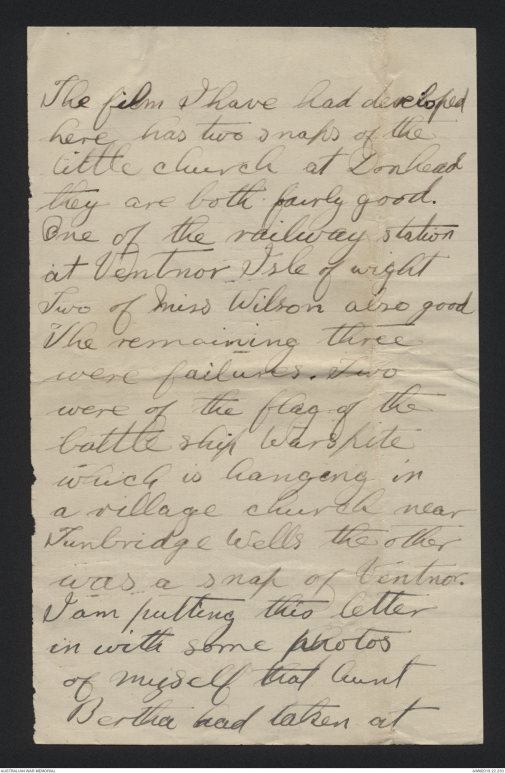 The film I have had developed
here has two snaps of the
little church at Donhead
they are both fairly good.
One of the railway station
at Ventnor Isle of wight
Two of Miss Wilson also good
The remaining three
were failures. Two
were of the flag of the
battle ship Warspite
which is hanging in
a village church near
Tunbridge Wells the other
was a snap of Ventnor.
I am putting this letter
in with some photos
of myself that Aunt
Bertha had taken at
AUSTRALIAN WAR MEMORIAL